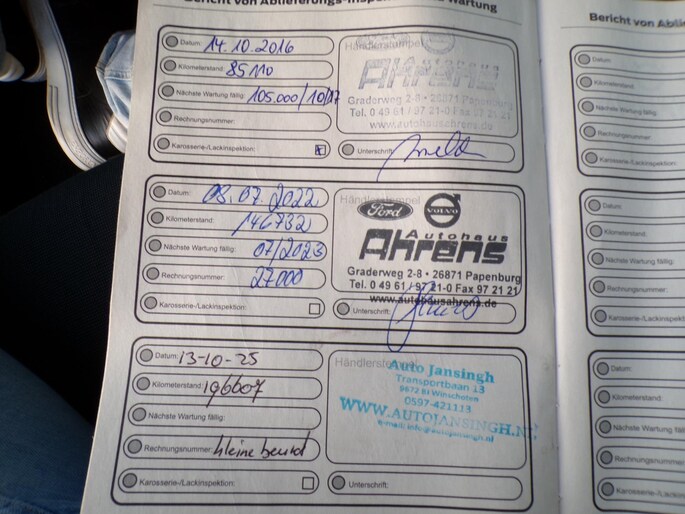 Bericht von Ablieferungs-Inspe Wartung
Bericht von Ablie
Datum: 14.10.2016
Kilometerstand: 85110
Nächste Wartung fällig: 105.000/10/17
Rechnungsnummer:
Karosserie-/Lackinspektion: x
Händlerstempel
Ahrens
Graderweg 2-8 • 26871 Papenburg
Tel. 0 49 61 / 97 21-0 Fax 97 21 21
www.autohausahrens.de
Unterschrift:
Datum: 08.07.2022
Kilometerstand: 146732
Nächste Wartung fällig: 07/2023
Rechnungsnummer: 27000
Karosserie-/Lackinspektion:
Händlerstempel
Ford VOLVO
Autohaus
Ahrens
Graderweg 2-8 • 26871 Papenburg
Tel. 0 49 61 / 97 21-0 Fax 97 21 21
www.autohausahrens.de
Unterschrift:
Datum: 13-10-25
Kilometerstand: 196607
Nächste Wartung fällig:
Rechnungsnummer: kleine beurt
Karosserie-/Lackinspektion:
Händlerstempel
Auto Jansingh
Transportbaan 13
9672 BJ Winschoten
0597-421113
WWW.AUTOJANSINGH.NL
e-mail: info@autojansingh.nl
Unterschrift:
Datum:
Kilometerstand:
Nächste Wartung fällig:
Rechnungsnummer:
Karosserie-/Lackinspekt
Datum:
Kilometerstand:
Nächste Wartung fällig:
Rechnungsnummer:
Karosserie-/Lackinspek
Datum:
Kilometerstand:
Nächste Wartung fällig:
Rechnungsnummer:
Karosserie-/Lackinsp